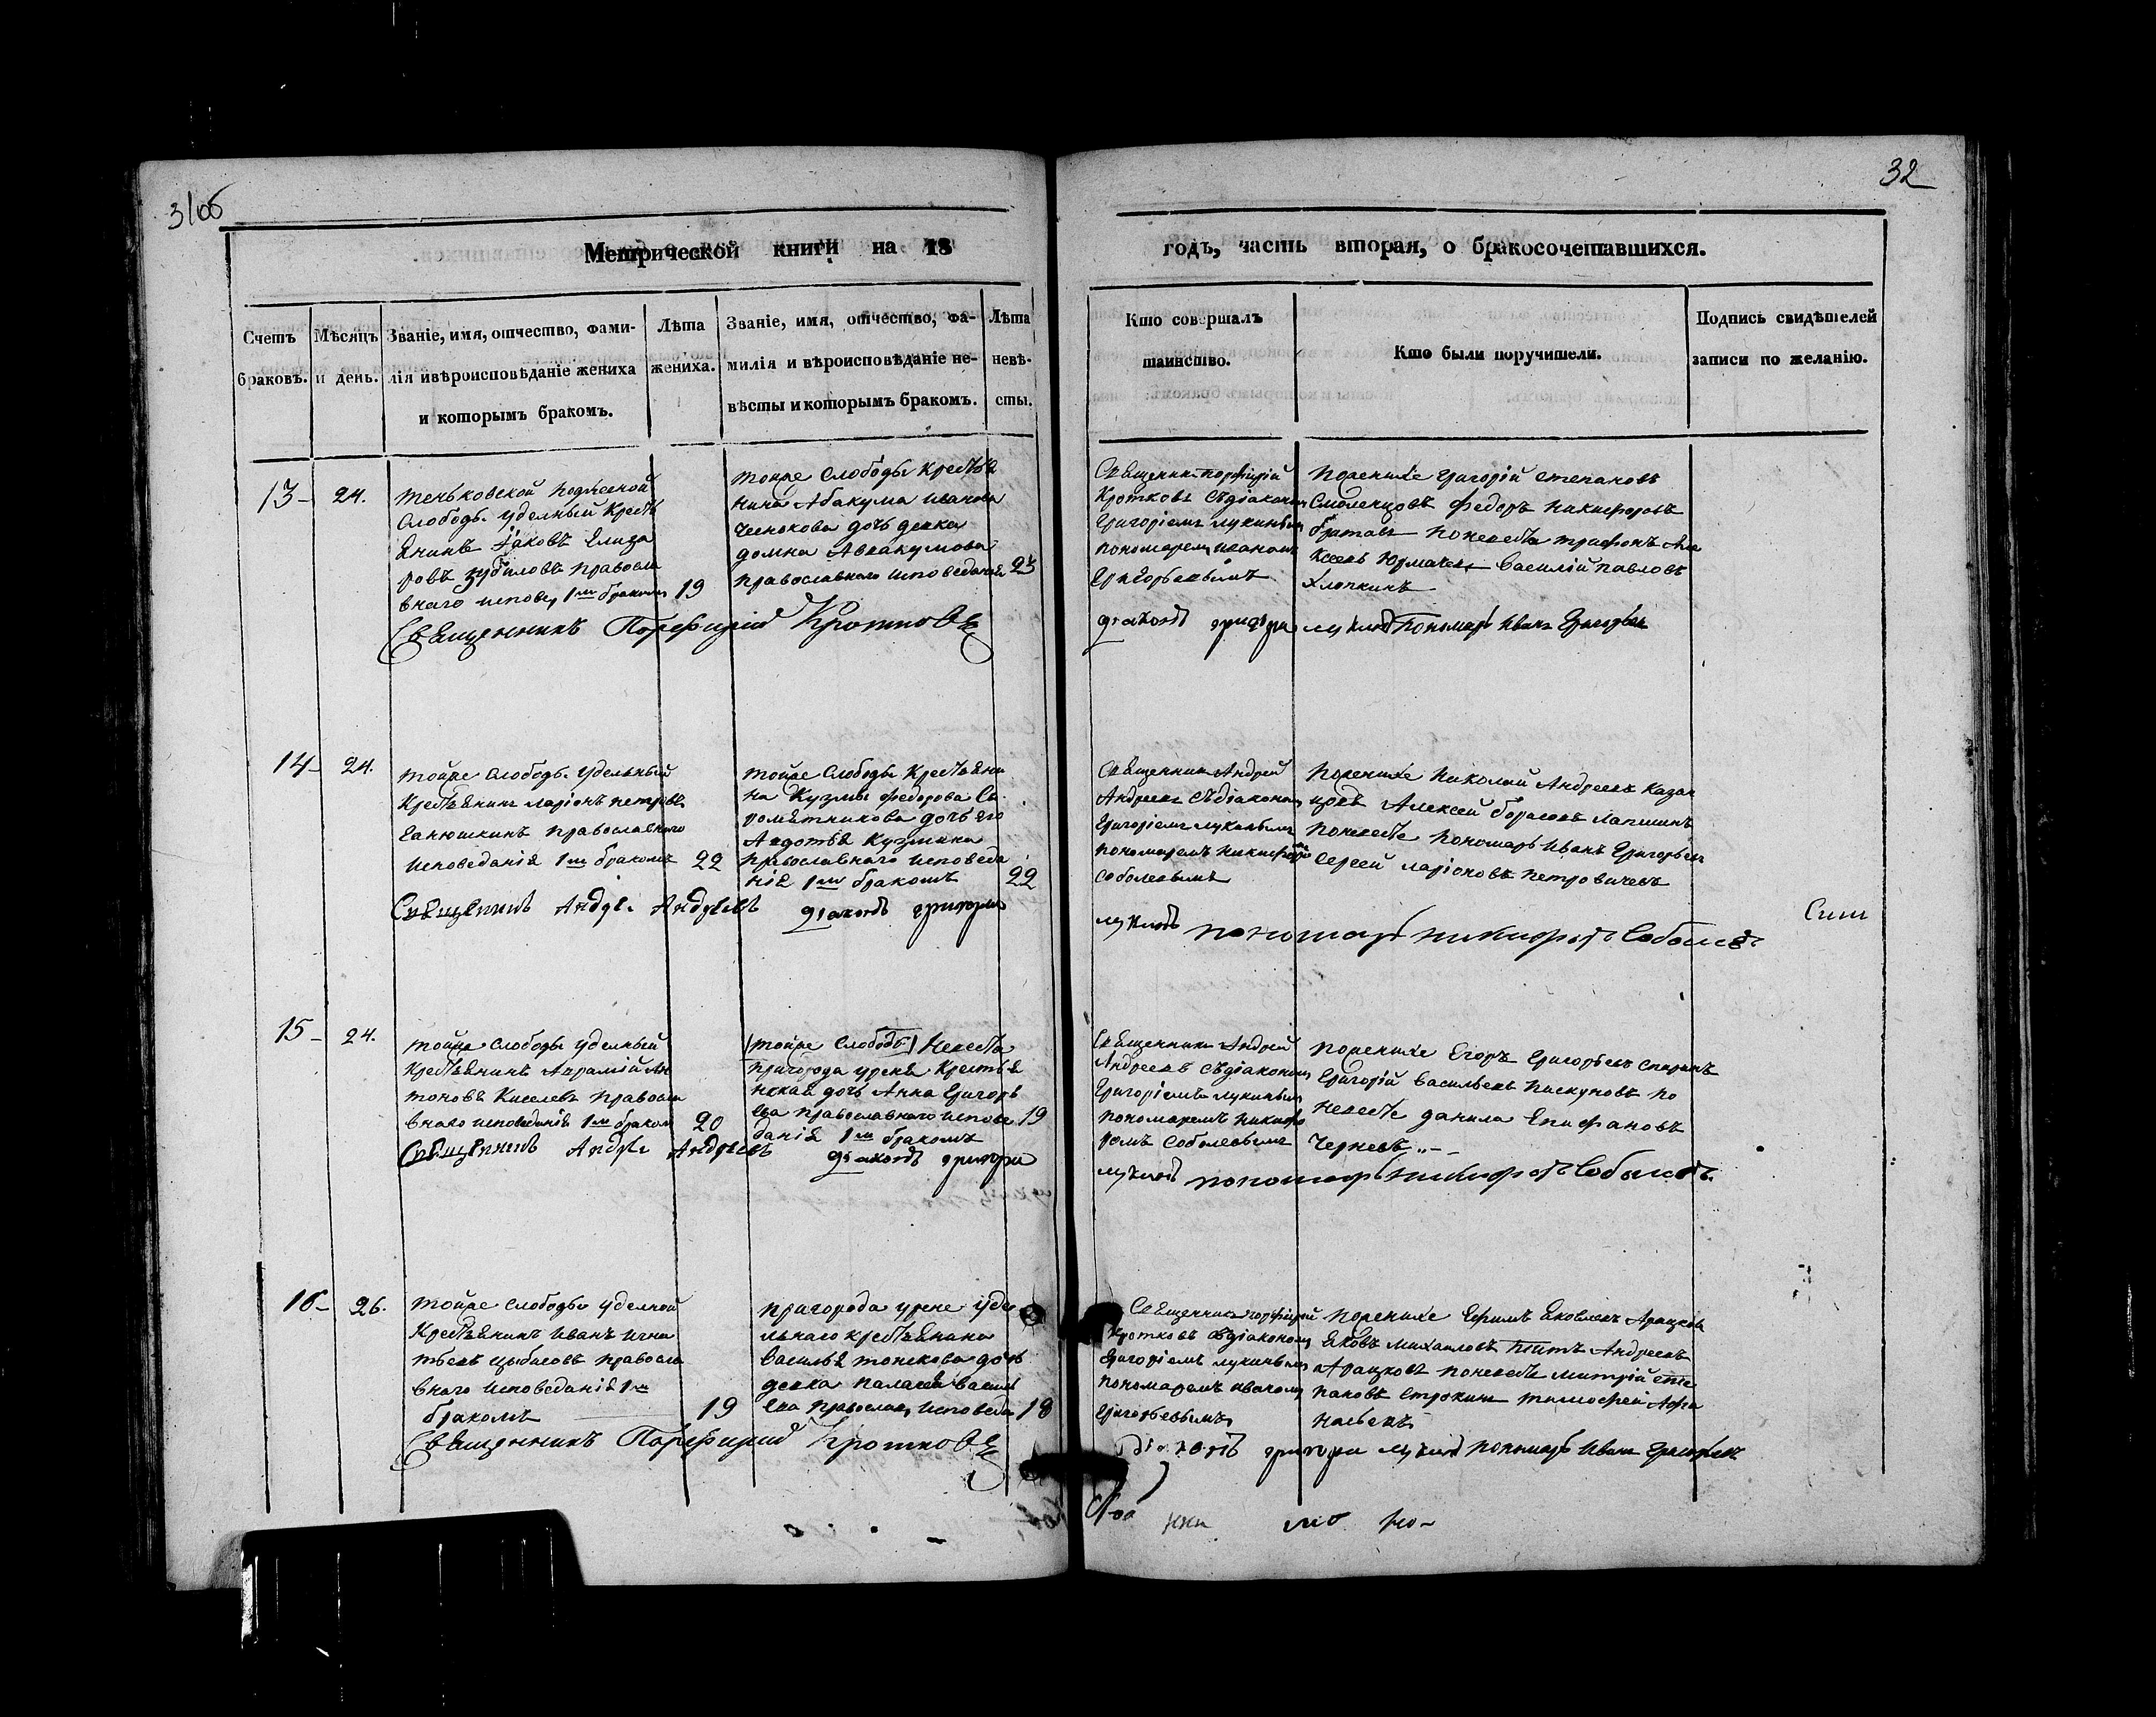 31об
32
Метрической книги на 18
годъ, часть вторая, о бракосочетавшихся.
Счетъ браковъ.
Мѣсяцъ и день.
Званіе, имя, отчество, фами-
лія и вѣроисповѣданіе жениха
и которымъ бракомъ.
Лѣта
жениха.
Званіе, имя, отчество, фа-
милія и вѣроисповѣданіе не-
вѣсты и которымъ бракомъ.
Лѣта
невѣ-
сты.
Кто совершалъ
таинство.
Кто были поручители.
Подпись свидѣтелей
записи по желанію.
13
24.
теньковской подлесной
Слободы удельный Кресть
янинъ Іаковъ Елиза
ровъ зубиловъ правосла
внаго испове, 1мъ бракомъ
19
тойже Слободы Крестья
нина Абакума Иванова
дочь девка
домна Аввакумова
православнаго исповеданія
23
Священникъ порфирій
Кротковъ съ діакономъ
Григоріемъ лукинымъ
пономаремъ иваномъ
Григорьевымъ
пожениха Григорій степановъ
Смоленцовъ Федоръ никифоровъ
поневеста трифонъ Але
Василій павловъ
Хлопкинъ
Священникъ Порфирій Кротковъ
діаконъ григори лукинъ пономарь Иванъ Григорьевъ
14
24.
тойже слободы удельный
Крестьянинъ ларіонъ петровъ
Ванюшкинъ православнаго
исповеданія 1мъ бракомъ
22
тойже Слободы Крестьяни
на Кузмы федорова Сы
ромятникова дочь его
Авдотья Кузмина
православнаго исповеда
нія 1мъ бракомъ
22
Священникъ Андрей
Андреевъ съ діакономъ
Григоріемъ лукинымъ
пономаремъ никифоромъ
соболевымъ
пожениха Николай Андреевъ Казан
цовъ Алексей борисовъ лапшинъ
поневесте пономарь иванъ Григорьевъ
Сергей ларіоновъ петровичевъ
Священникъ Андре. Андреевъ діаконъ григори
лукинъ пономарь никифоръ Соболевъ
15
24.
тойже слободы удельный
Крестьянинъ Авраамій Ан
тоновъ Киселевъ правосла
внаго исповеданія 1мъ браком
20
тойже слободы невеста
пригорода уреня Крестья
нская дочь Анна Григорь
ева православнаго испове
данія 1мъ бракомъ
19
Священникъ Андрей
Андреевъ съ діакономъ
Григоріемъ лукинымъ
пономаремъ никифо
ромъ соболевымъ
пожениха Егоръ Григорьевъ
Григорій Васильевъ пискуновъ по
невесте данила Епифановъ
Черневъ
Священникъ Андре. Андреевъ діаконъ григори
лукинъ пономарь никифоръ Соболевъ
16
26.
тойже слободы уделной
Крестьянинъ Иванъ игна
тьевъ цыбисовъ правосла
внаго исповеданія 1мъ
бракомъ
19
пригорода урене уде
льнаго крестьянина
Василья тонекова дочь
девка палагея василь
ева православ, исповеда
18
Священникъ порфирій
Кротковъ съ діакономъ
Григоріемъ лукинымъ
пономаремъ иваномъ
Григорьевымъ
пожениха Ефимъ Яковлевъ Арацковъ
Яковъ михаиловъ титъ Андреевъ
Арацковъ поневесте митрій сте
пановъ строкинъ тимофей Афа
насьевъ
Священникъ Порфирій Кротковъ
діаконъ григори лукинъ пономарь Иванъ Григорьевъ